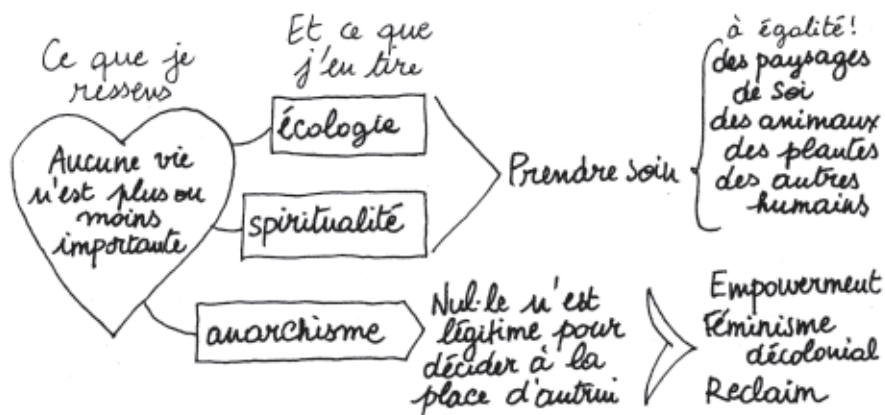 Ce que je
ressens
Et ce que
j'en tire
Aucune vie
n'est plus ou
moins
importante
écologie
spiritualité
anarchisme
Prendre soin
à égalité!
des paysages
de soi
des animaux
des plantes
des autres
humains
Nul·le n'est
légitime pour
décider à la
place d'autrui
Empowerment
Féminisme
décolonial
Reclaim